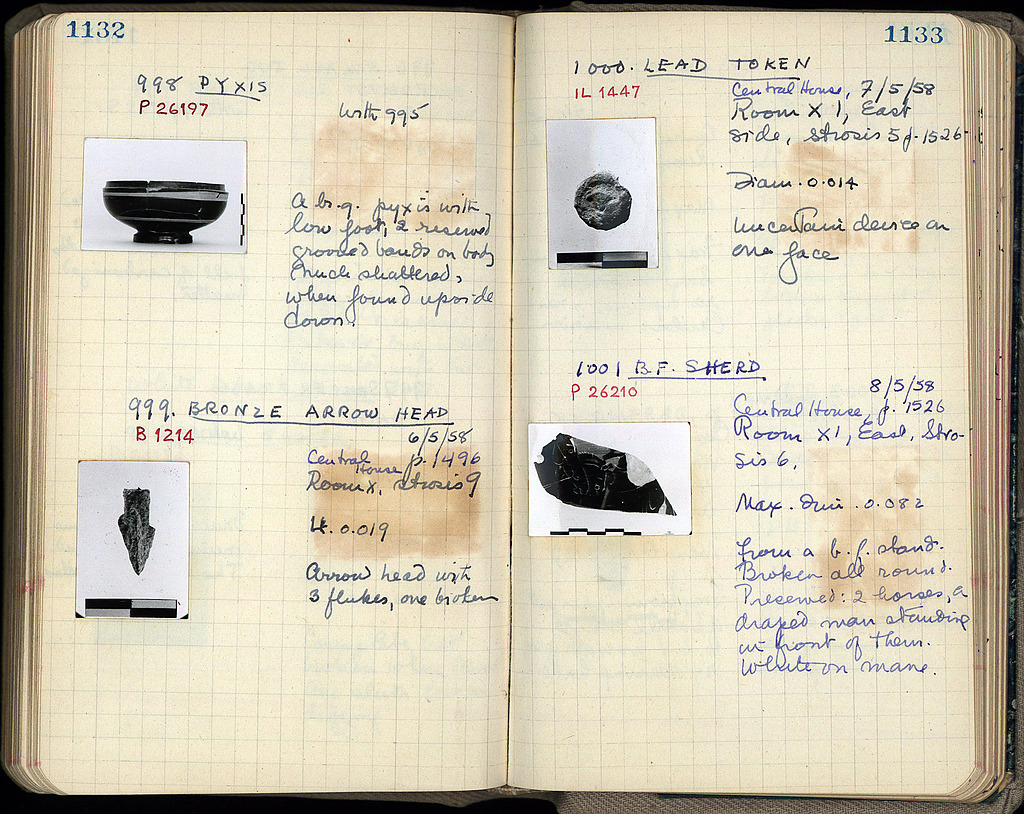 1132
998 PYXIS
P 26197
with 995
A b.g. pyxis with
low foot, 2 reserved
grooved bands on body
Much shattered,
when found upside
down.
999. BRONZE ARROW HEAD
B 1214
6/5/58
Central House p. 1496
Room X, strosis 9
H. 0.019
Arrow head with
3 flukes, one broken
1133
1000. LEAD TOKEN
IL 1447
Central House, 7/5/58
Room X 1, East
side, strosis 5 p. 1526
Diam. 0.014
uncertain device on
one face
1001 B.F. SHERD
P 26210
8/5/58
Central House, p. 1526
Room X1, East, Stro-
sis 6.
Max. dim. 0.082
from a b.f. stand.
Broken all round.
Preserved: 2 horses, a
draped man standing
in front of them.
White on mane.